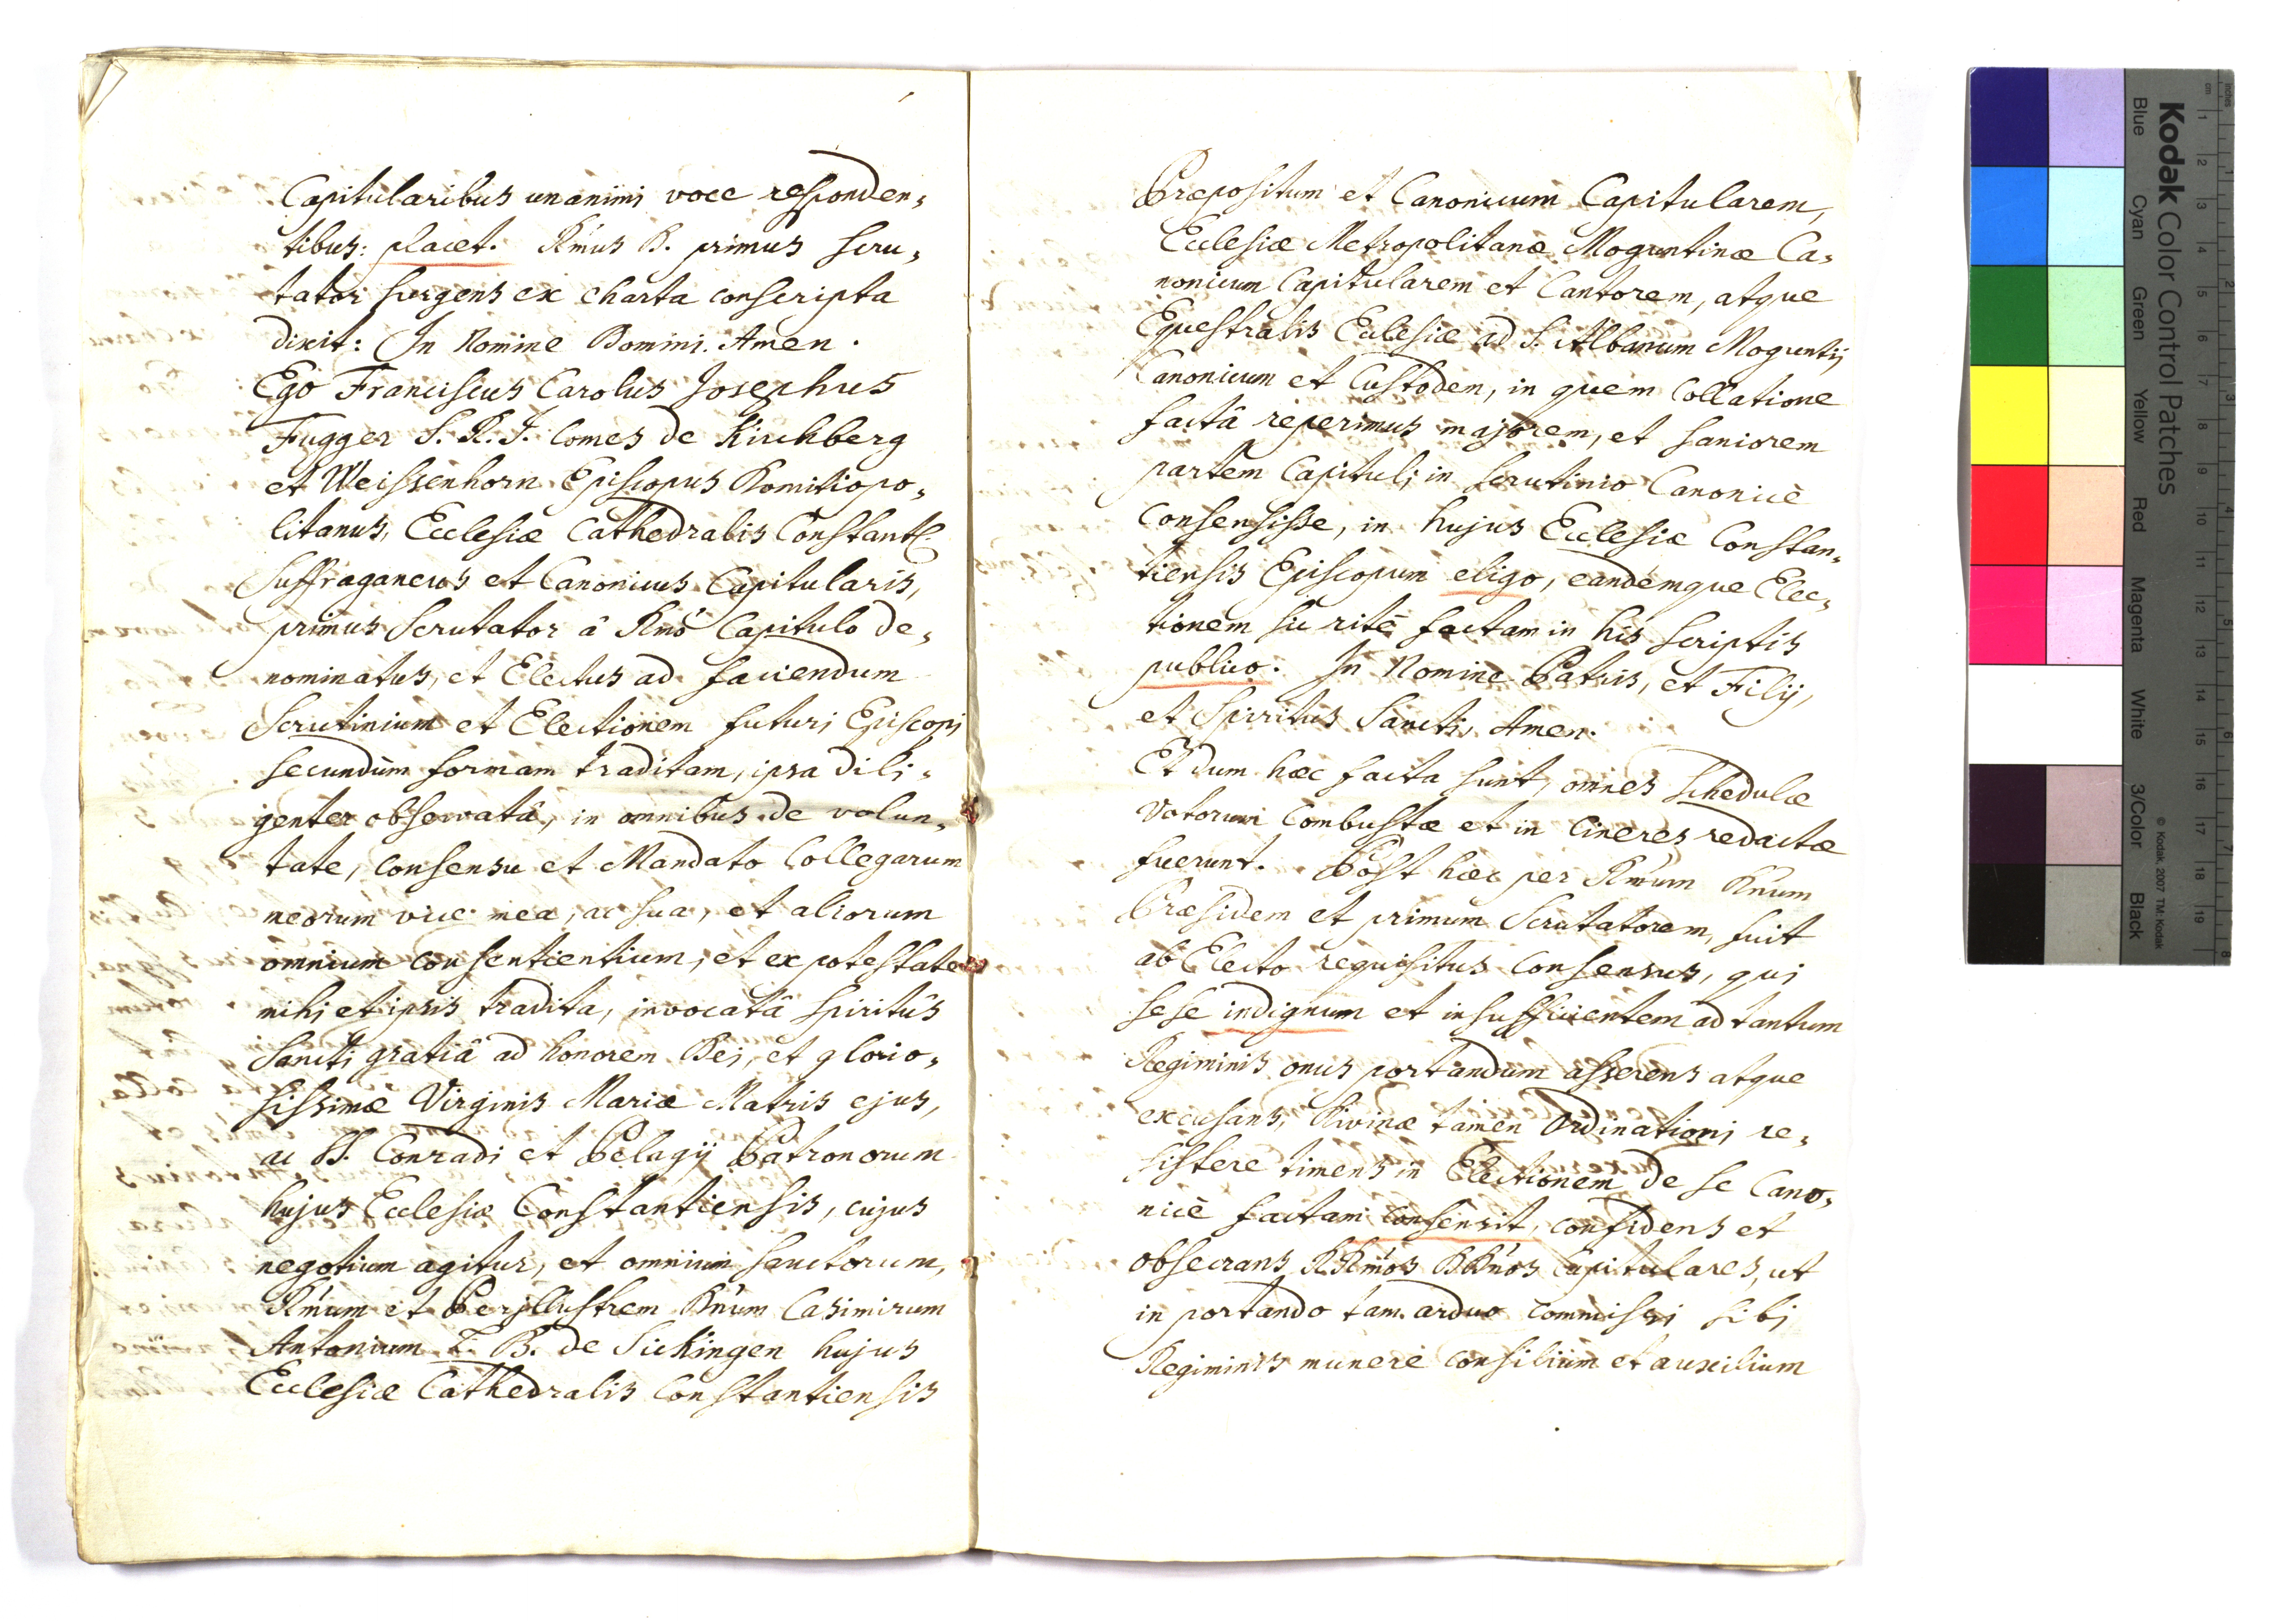 Capitularibus unanimi voce responden„
tibus: placet. Rmus D. primus scru„
tator surgens ex charta conscripta
dixit: In Nomine Domini. Amen.
Ego Franciscus Carolus Josephus
Fugger S. R. I. Comes de Kirchberg
et Weissenhorn Episcopus Domitiopo„
litanus, Ecclesiæ Cathedralis Constant.
Suffraganeus et Canonicus Capitularis,
primus Scrutator â Rmo Capitulo de„
nominatus, et Electus ad faciendum
Scrutinium et Electionem futuri Episcopi
secundùm formam traditam, ipsa dili„
genter observatâ, in omnibus de volun„
tate, consensu et Mandato Collegarum
meorum vice mea, ac sua, et aliorum
omnium consentientium, et ex potestate
mihi et ipsis tradita, invocatâ Spiritûs
Sancti gratiâ ad honorem Dei, et glorio„
sissimæ Virginis Mariæ Matris ejus,
ac SS. Conradi et Pelagij Patronorum
hujus Ecclesiæ Constantiensis, cujus
negotium agitur, et omnium sanctorum,
Rmum et Perillustrem Dnum Casimirum
Antonium L. B. de Sickingen hujus
Ecclesiæ Cathedralis Constantiensis
Præpositum et Canonicum Capitularem,
Ecclesiæ Metropolitanæ Moguntinæ Ca„
nonicum Capitularem et Cantorem, atque
Equestralis Ecclesiæ ad S. Albanum Moguntij
Canonicum et Custodem, in quem Collatione
factâ reperimus majorem, et saniorem
partem Capituli in scrutinio Canonicè
Consensisse, in hujus Ecclesiæ Constan„
tiensis Episcopum eligo, eandemque Elec„
tionem sic ritè factam in his scriptis
publico. In Nomine Patris, et Filij,
et Spiritus Sancti, Amen.
Et dum hæc facta sunt, omnes schedulæ
Votorum Combustæ et in Cineres redactæ
fuerunt. Post hæc per Rmum Dnum
Præsidem et primum Scrutatorem, fuit
ab Electo requisitus Consensus, qui
sese indignum et insufficientem ad tantum
Regiminis onus portandum asserens atque
excusans, Divinæ tamen Ordinationi re„
sistere timens in Electionem de se Cano„
nicè factam consensit, confidens et
obsecrans RRmos DDnos Capitulares, ut
in portando tam arduo commissi sibi
Regiminis munere consilium et auxilium
Kodak Color Control Patches
Blue Cyan Green Yellow Red Magenta White 3/Color Black
© Kodak, 2007 TM: Kodak
cm 1 2 3 4 5 6 7 8 9 10 11 12 13 14 15 16 17 18 19
inches 1 2 3 4 5 6 7 8